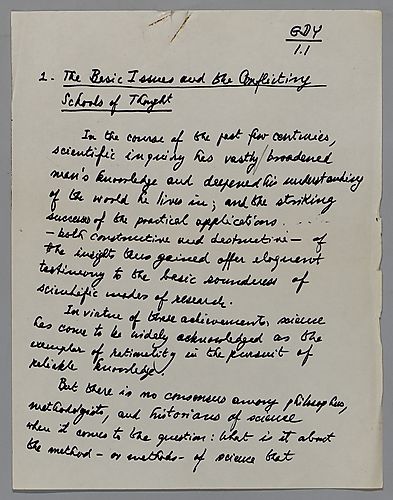 GDY
1.1
1. The Basic Issues and the Conflicting
Schools of Thought
In the course of the past few centuries,
scientific inquiry has vastly broadened
man's knowledge and deepened his understanding
of the world he lives in; and the striking
success of the practical applications .....
- both constructive and destructive - of
the insights thus gained offer eloquent
testimony to the basic soundness of
scientific modes of research.
In virtue of these achievements, science
has come to be widely acknowledged as the
exemplar of rationality in the pursuit of
reliable knowledge.
But there is no consensus among philosophers,
methodologists, and historians of science
when it comes to the question: What is it about
the method - or methods - of science that